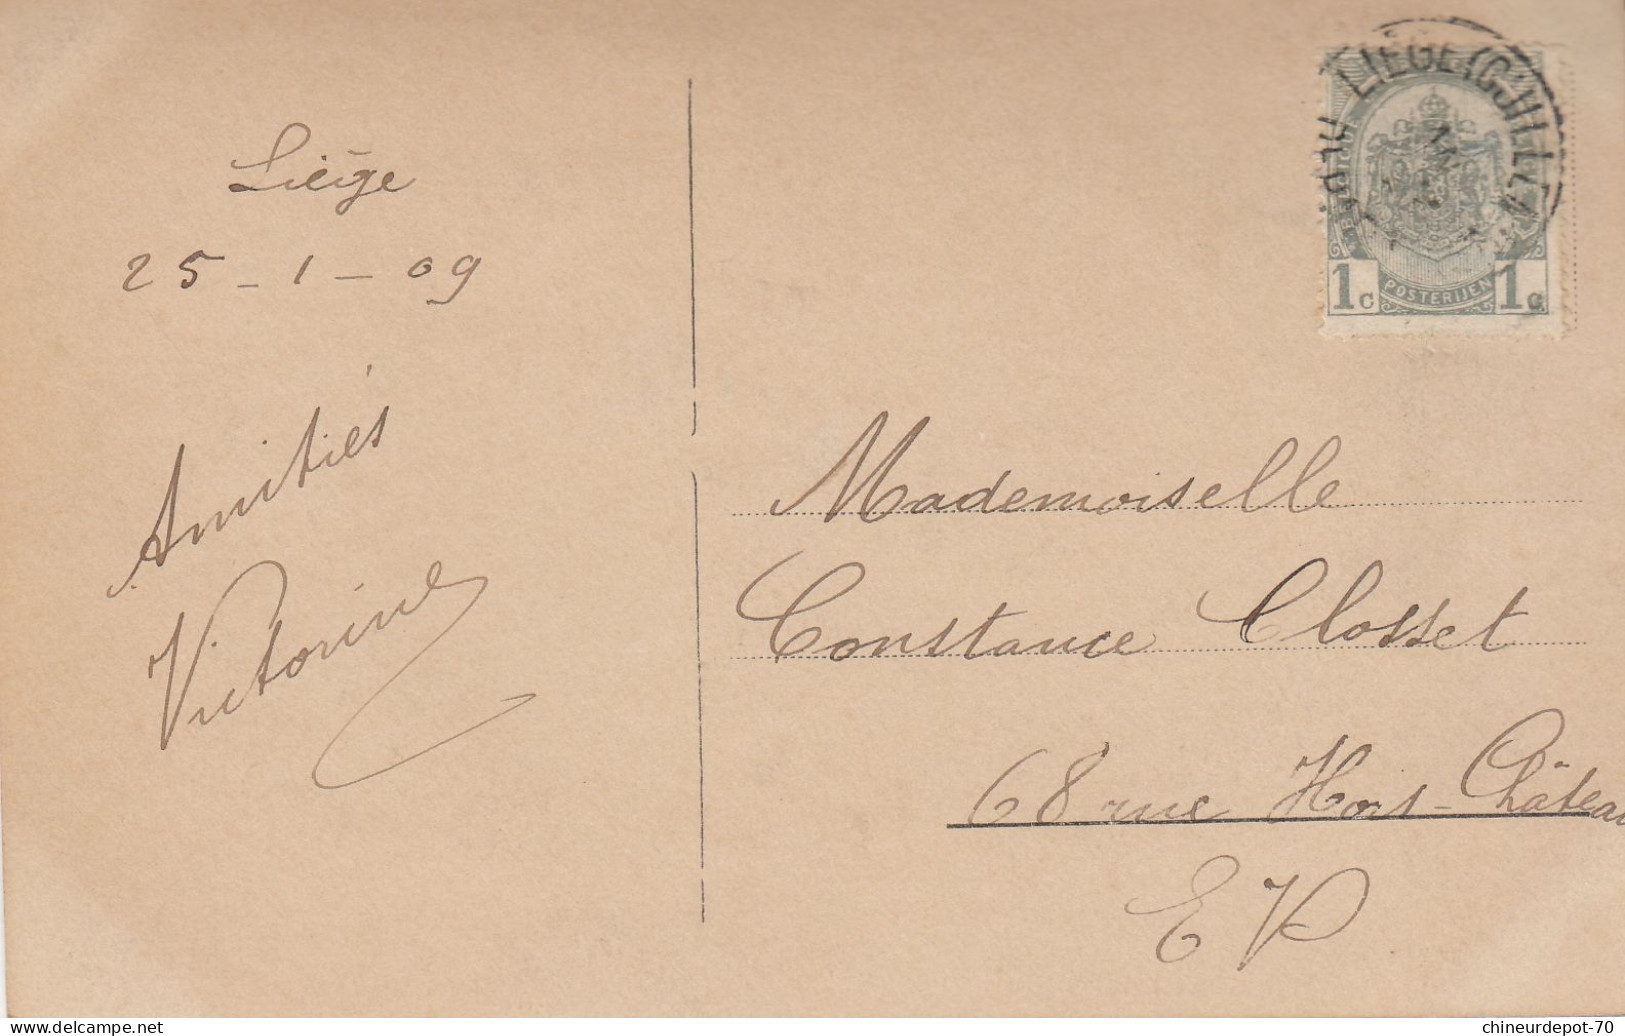 Liége
25 - 1 - 09
Amitiés
Victorine
LIÉGE (G
1c POSTERIJEN 1c
Mademoiselle
Constance Closset
68 rue Hors-Château
E V
www.delcampe.net
chineurdepot-70